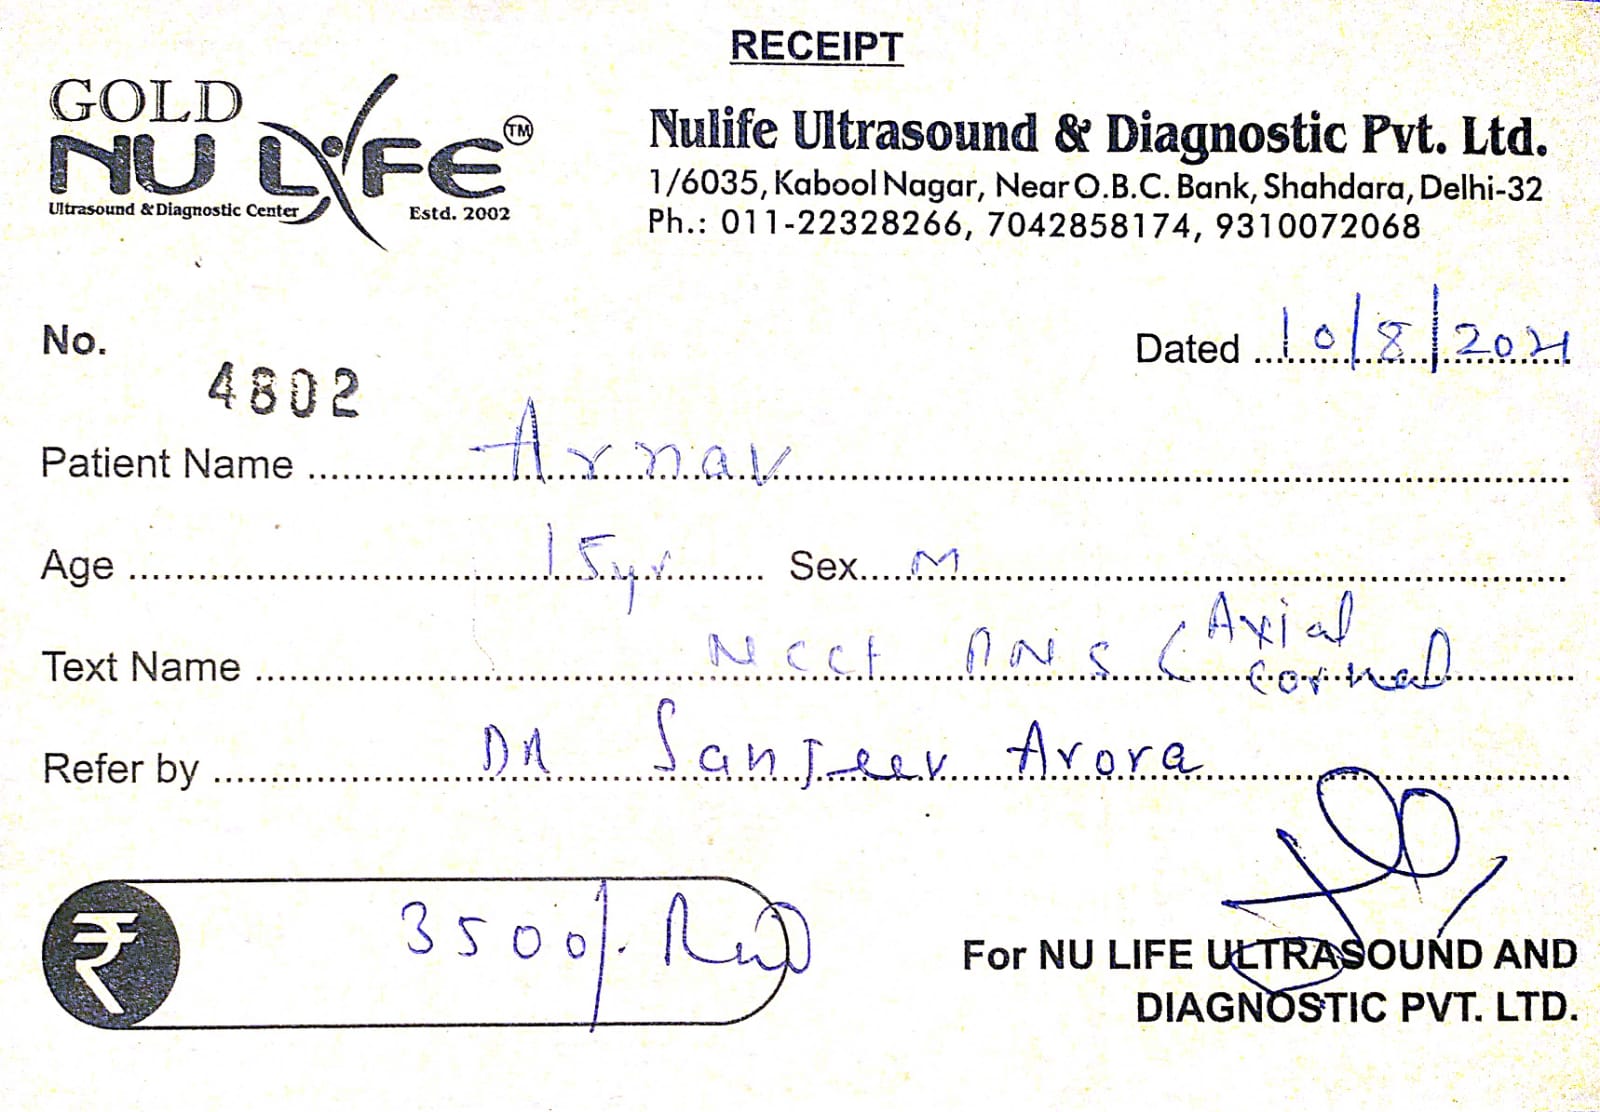 RECEIPT
GOLD
NU LIFE TM
Ultrasound & Diagnostic Center Estd. 2002
Nulife Ultrasound & Diagnostic Pvt. Ltd.
1/6035, Kabool Nagar, Near O.B.C. Bank, Shahdara, Delhi-32
Ph.: 011-22328266, 7042858174, 9310072068
No. 4802
Dated 10/8/2021
Patient Name Arnav
Age 15yr Sex M
Text Name NCCt PNS ( Axial
Cornal
Refer by DR Sanjeev Arora
₹ 3500/-
For NU LIFE ULTRASOUND AND
DIAGNOSTIC PVT. LTD.